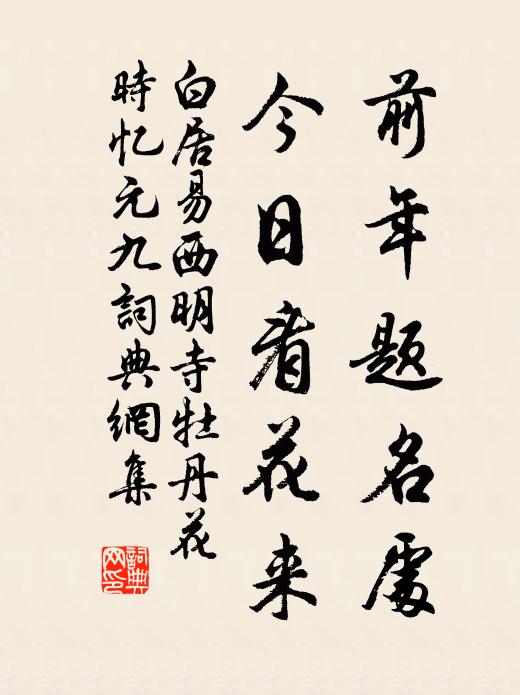 前年题名處
今日看花来
白居易西明寺牡丹花
時忆元九詞典網集
詞典网印